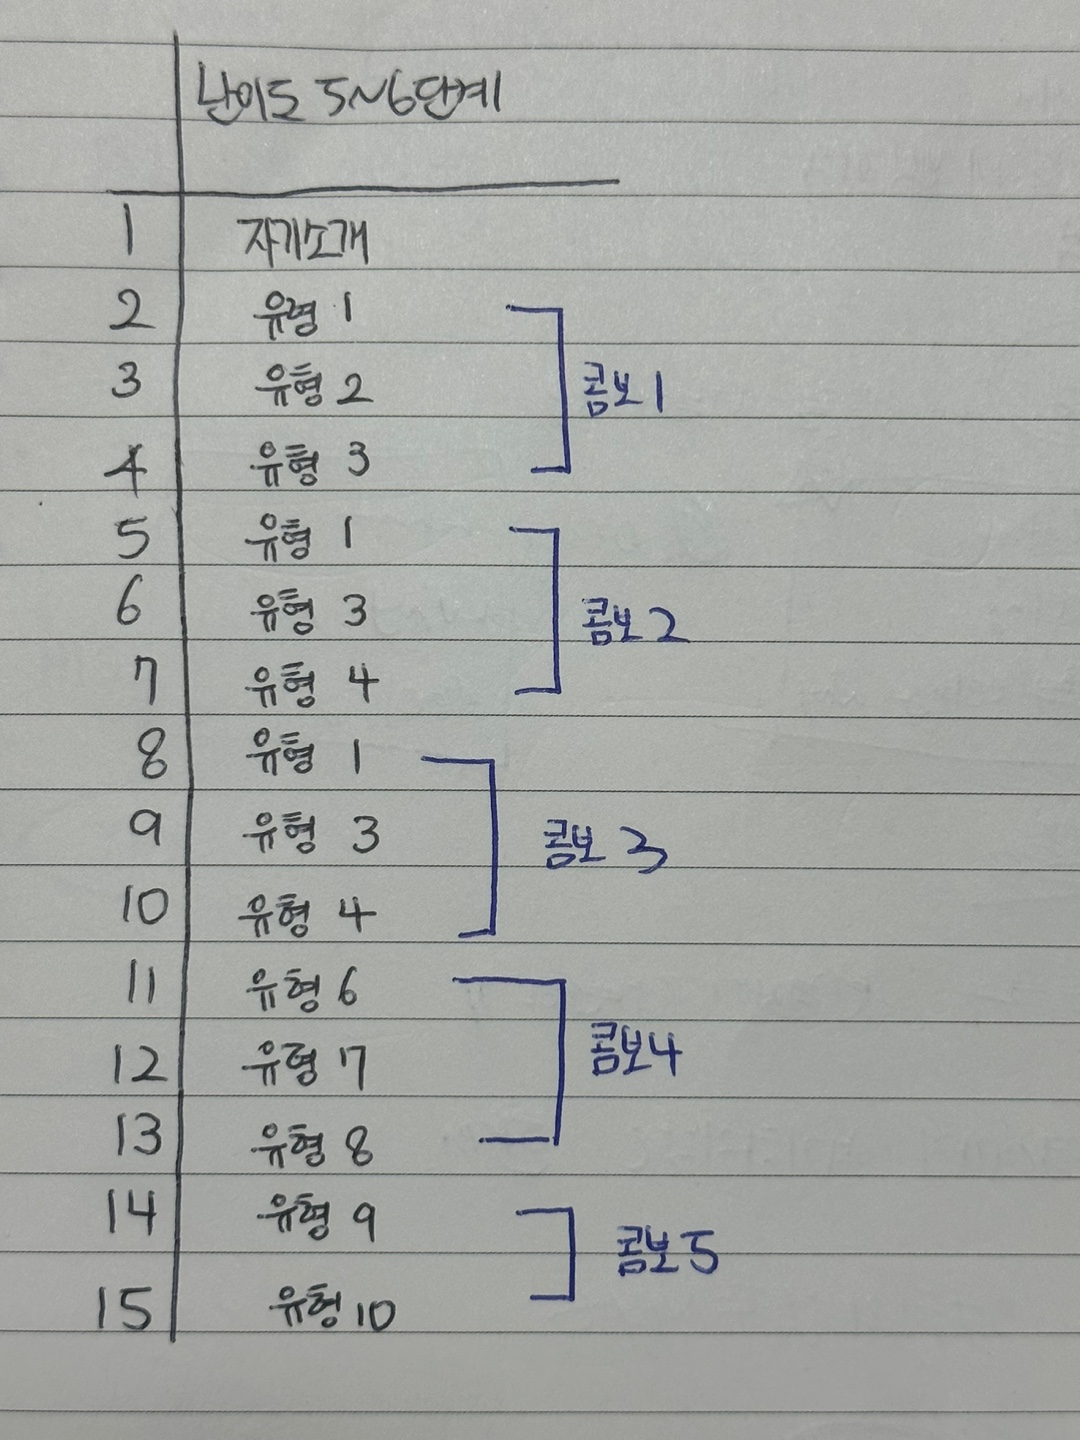 난이도 5~6단계
1 자기소개
2 유형 1
3 유형 2 콤보1
4 유형 3
5 유형 1
6 유형 3 콤보2
7 유형 4
8 유형 1
9 유형 3 콤보 3
10 유형 4
11 유형 6
12 유형 7 콤보4
13 유형 8
14 유형 9 콤보5
15 유형 10